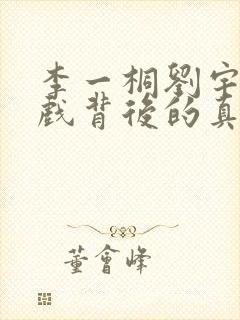 李一桐劉宇
戲背後的真
董會峰